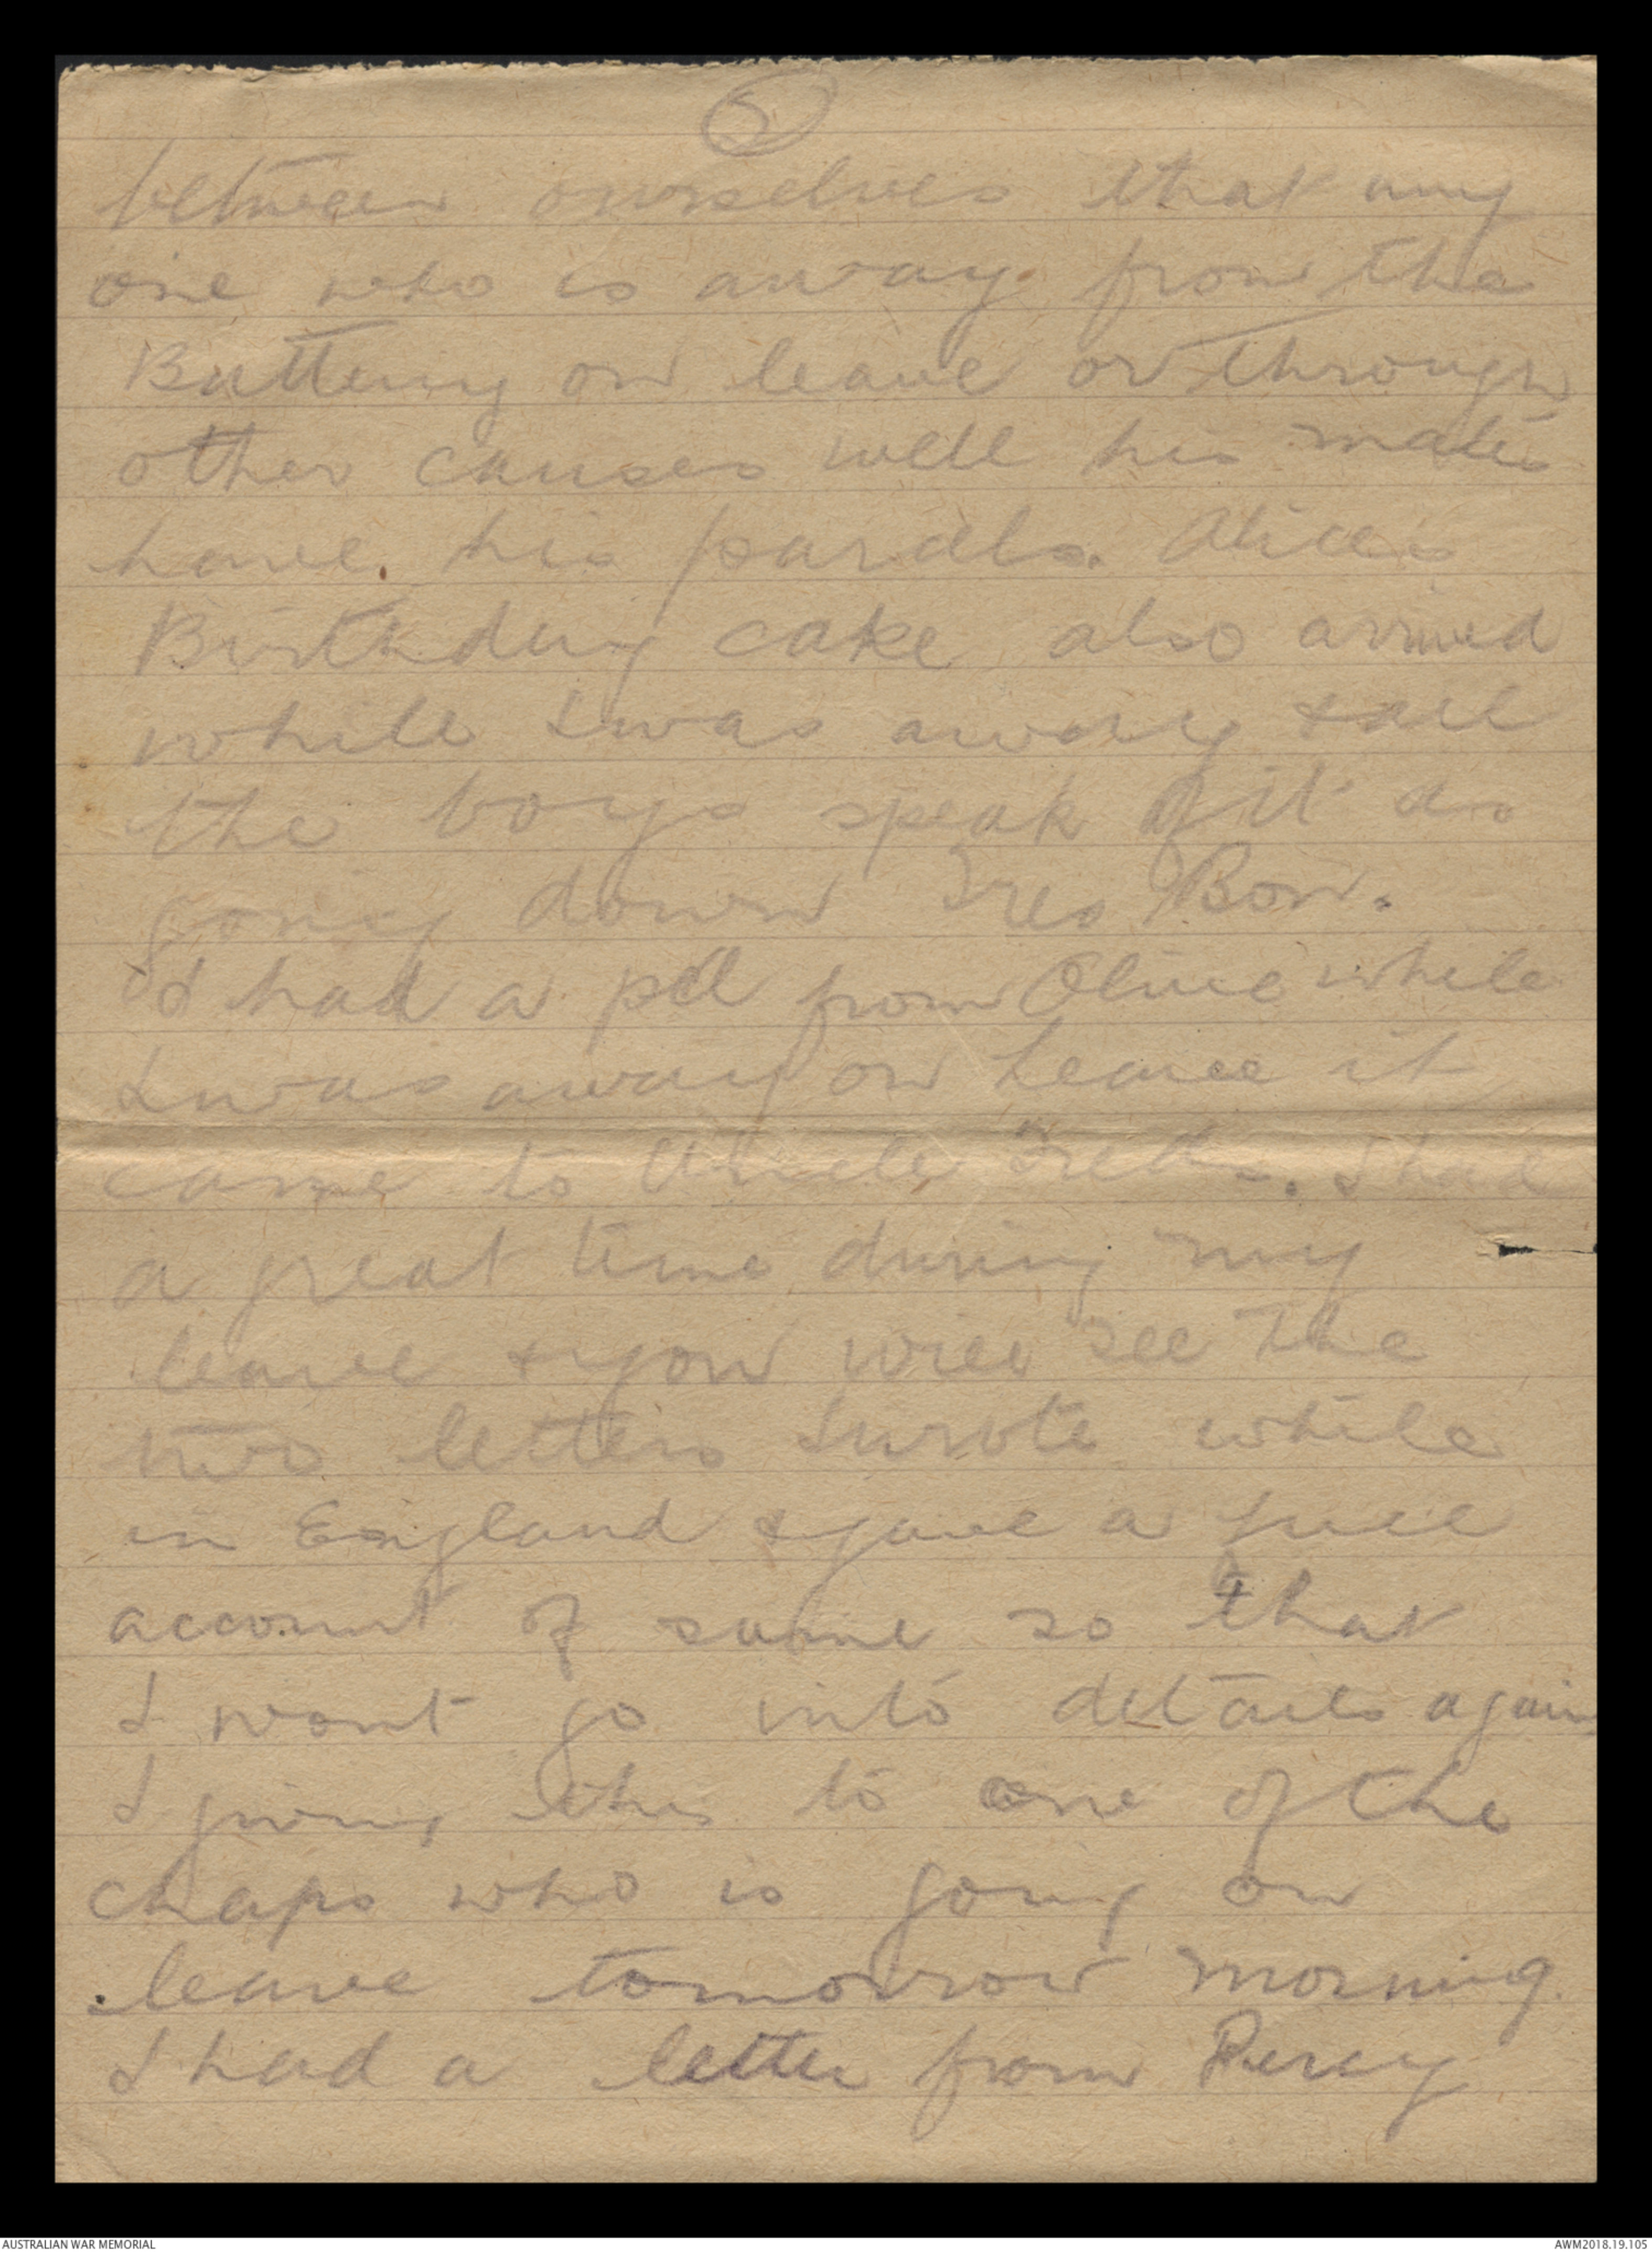 5
between ourselves that any
one who is away from the
Battery on leave or through
other causes well his mates
have his parcels. Alice's
Birthday cake also arrived
while I was away & all
the boys speak of it as
going down Tres Bon.
I had a pcl from Olive while
I was away on leave it
came to Uncle Freds. I had
a great time during my
leave & you will see the
two letters I wrote while
in England & gave a full
account of same so that
I wont go into details again
I giving this to one of the
chaps who is going on
leave tomorrow morning.
I had a letter from Percy
AUSTRALIAN WAR MEMORIAL
AWM2018.19.105